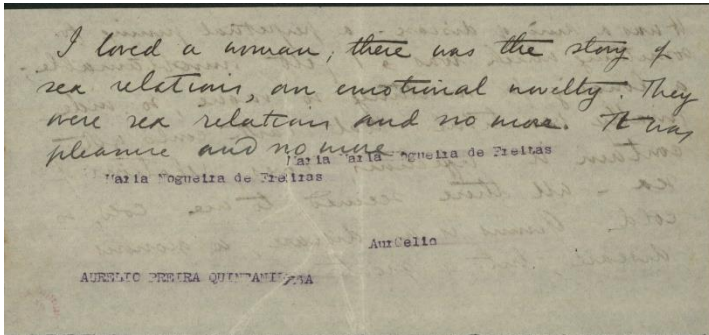 I loved a woman; there was the story of
sex relations, an emotional novelty. They
were sex relations and no more. It was
pleasure and no more
Maria Maria Nogueira de Freitas
Maria Nogueira de Freitas
Aurelio
AURELIO PREIRA